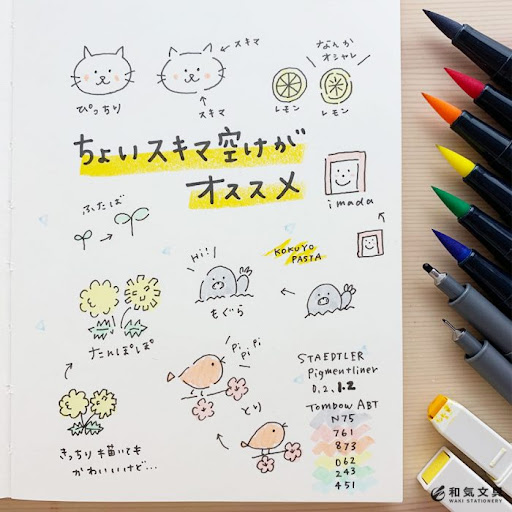 スキマ
ぴっちり
スキマ
なんか
オシャレ
レモン
レモン
ちょいスキマ空けが
オススメ
ふたば
imada
Hi!
もぐら
KOKUYO
PASTA
たんぽぽ
Pi
Pi
Pi
とり
きっちり描いても
かわいいけど…
STAEDTLER
Pigmentliner
0.2、1.2
Tombow ABT
N75
761
873
062
243
451
和気文具
WAKI STATIONERY